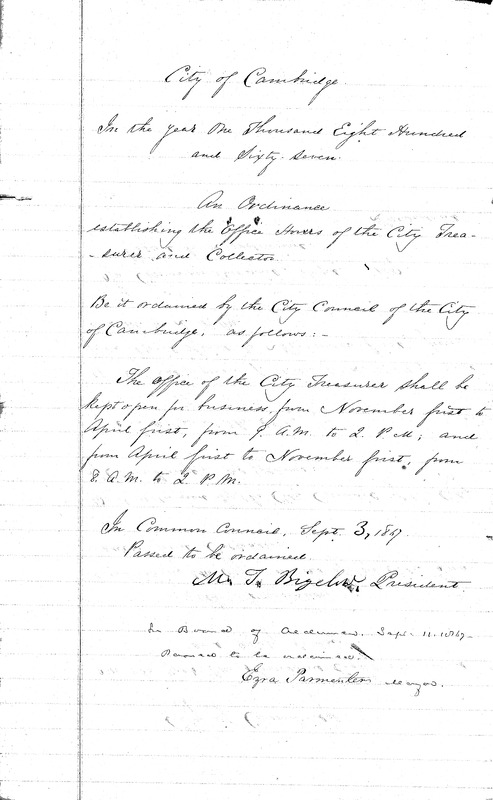 City of Cambridge.
In the year One Thousand Eight Hundred
and Sixty-seven.
An Ordinance
establishing the Office Hours of the City Trea-
-surer and Collector.
Be it ordained by the City Council of the City
of Cambridge, as follows:-
The office of the City Treasurer shall be
kept open for business, from November first to
April first, from 9. A.M. to 2. P.M; and
from April first to November first, from
8. A.M. to 2 P.M.
In Common Council, Sept. 3, 1867.
Passed to be ordained.
M. T. Bigelow, President.
In Board of Aldermen, Sept. 11. 1867-
Passed to be ordained.
Ezra Parmenter Mayor.